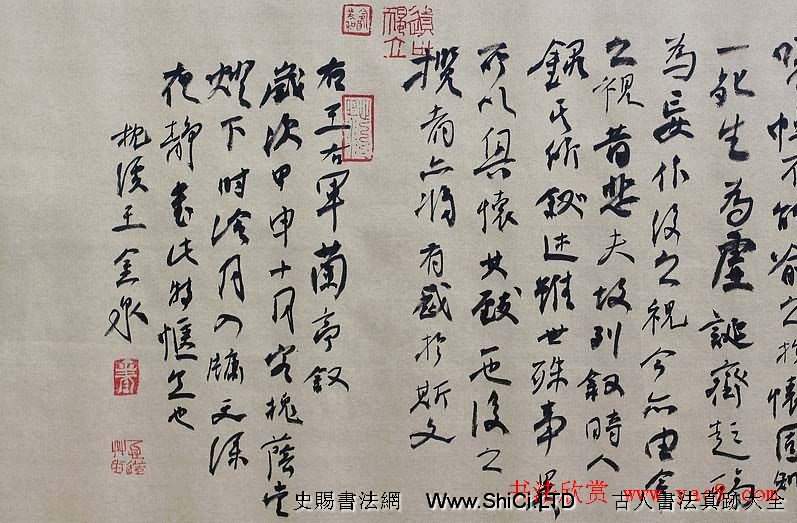 喻之於懷固知
一死生為虛誕齊彭殤
為妄作後之視今亦由今
之視昔悲夫故列敘時人
錄其所敘述雖世殊事異
所以興懷其致一也後之
攬者亦將有感於斯文
右王右軍蘭亭敘
歲次甲申十月客槐蔭堂
燈下時冷月入牖更深
夜靜書此特愜意也
王金泉
史賜書法網 Www.ShiCi.LTD 古人書法真跡大全
书法欣赏 www.yac8.com